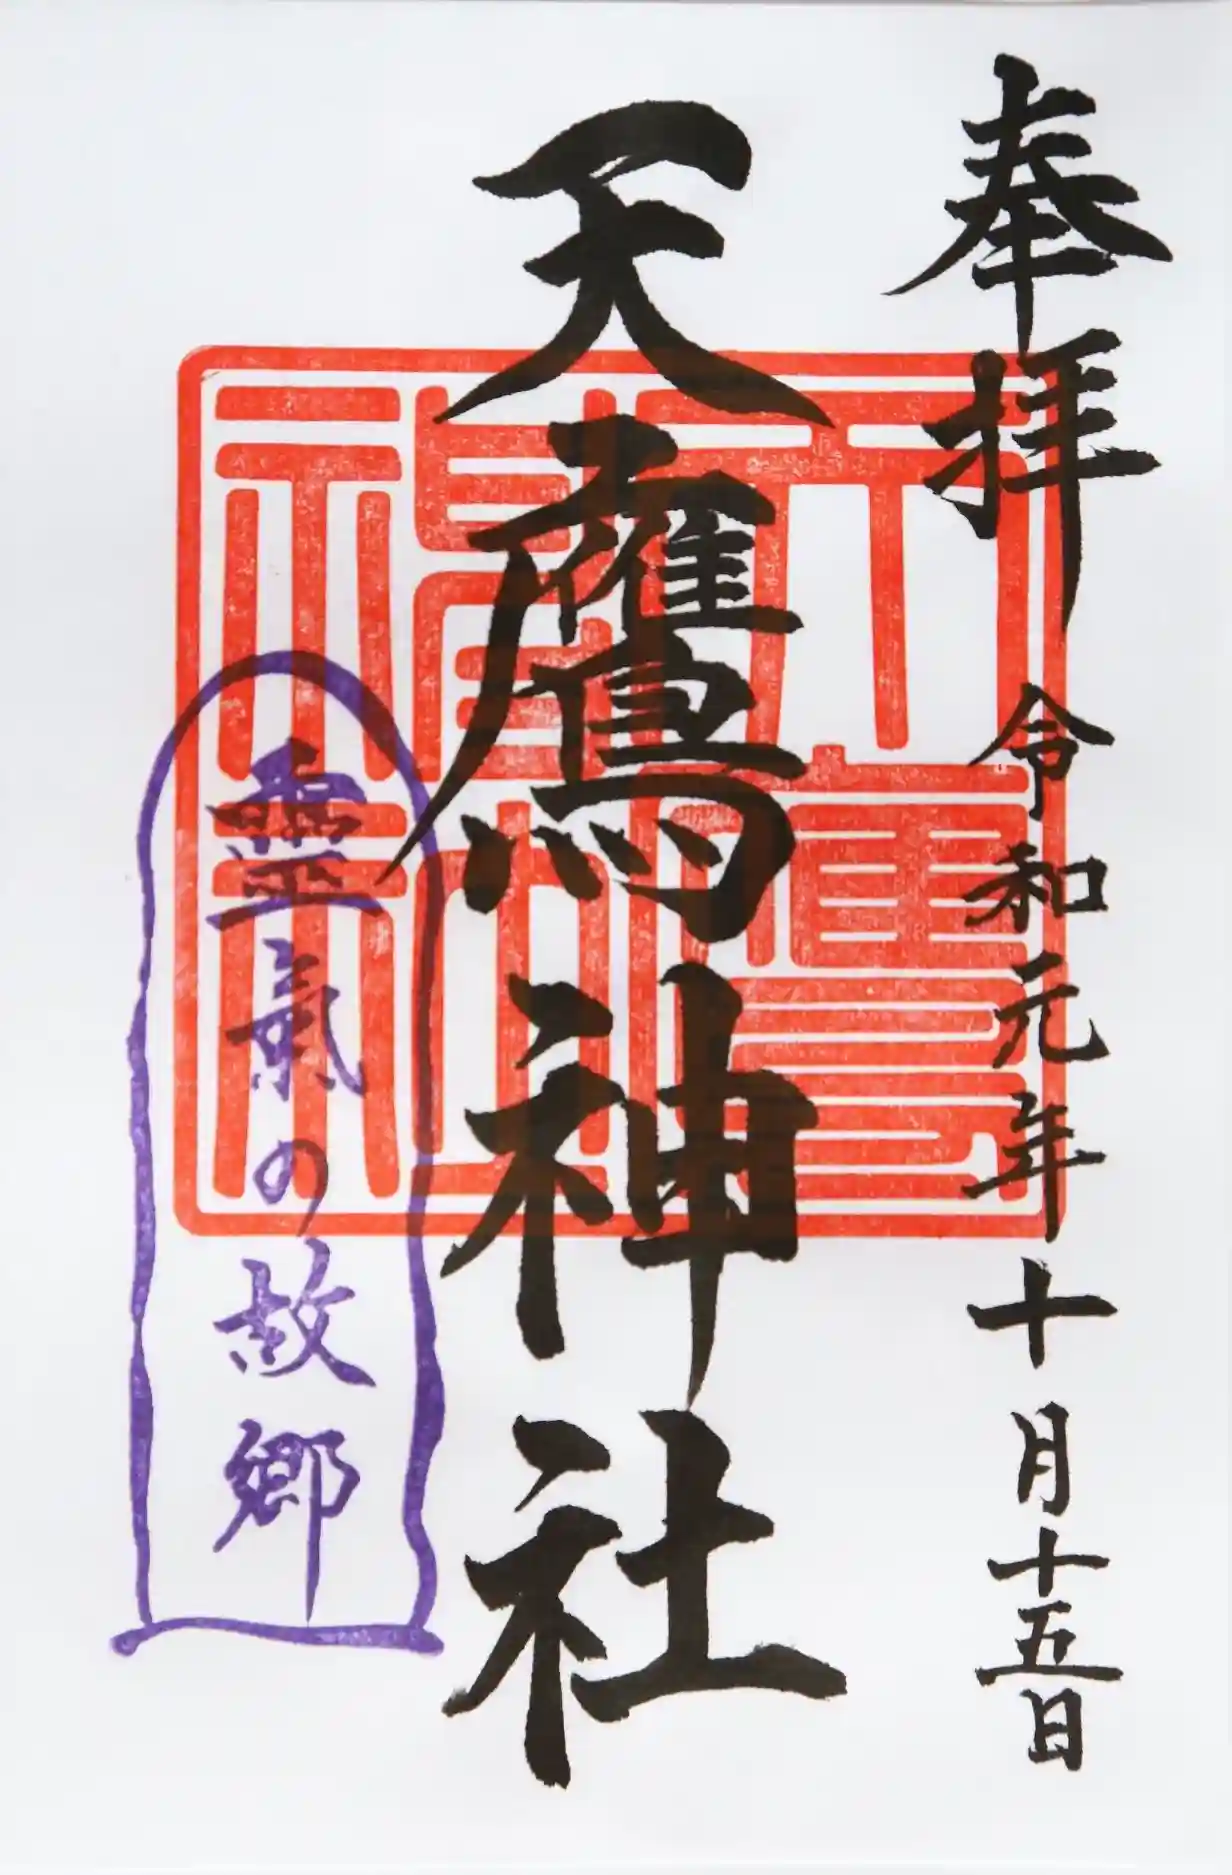 奉拝 令和元年十月十五日
天鷹神社
天鷹神社
霊氣の故郷